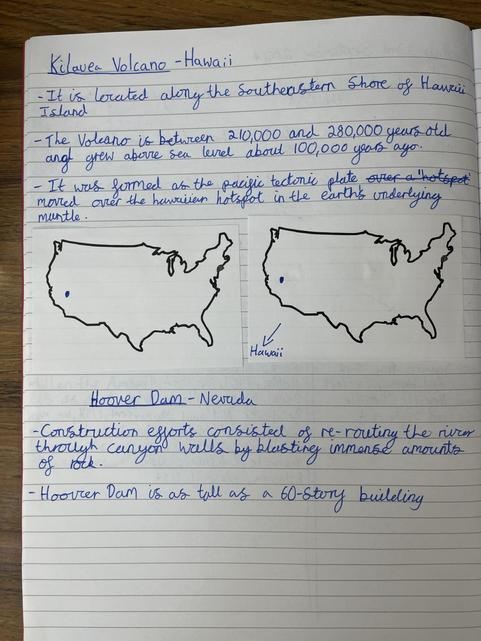 Kilavea Volcano - Hawaii
- It is located along the Southeastern Shore of Hawaii
Island
- The Volcano is between 210,000 and 280,000 years old
and grew above sea level about 100,000 years ago.
- It was formed as the pacific tectonic plate over a 'hotspot'
moved over the hawaiian hotspot in the earth's underlying
mantle.
Hawaii
Hoover Dam - Nevada
- Construction efforts consisted of re-routing the river
through canyon walls by blasting immense amounts
of rock.
- Hoover Dam is as tall as a 60-story building